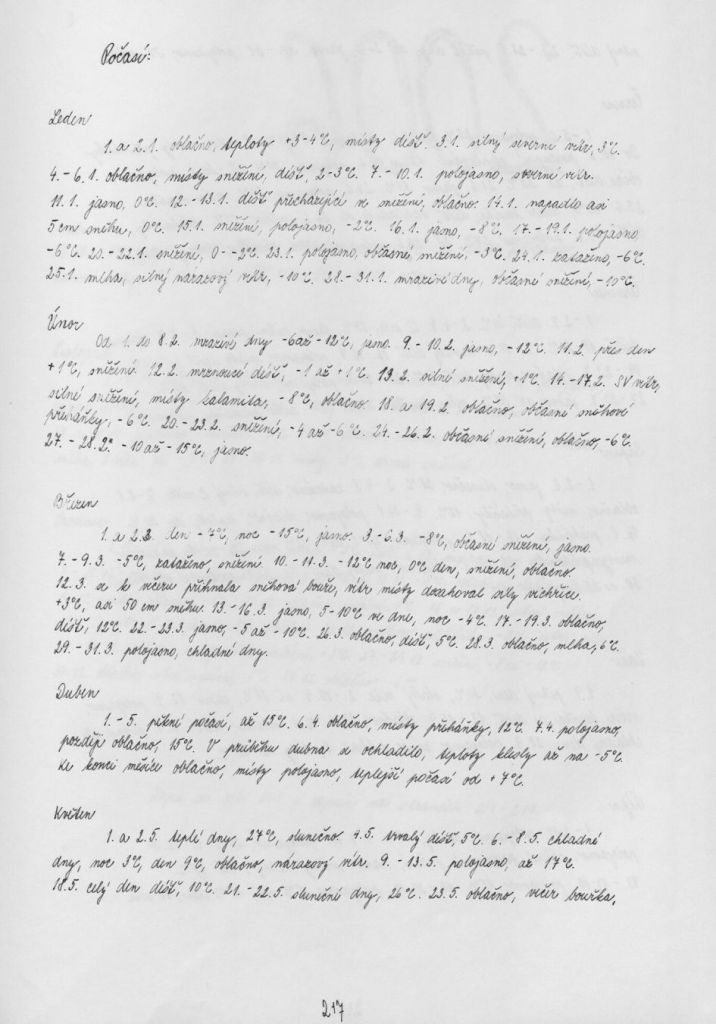 Počasí:
Leden
1. a 2.1. oblačno, teploty +3-4°C, místy déšť. 3.1. silný severní vítr, 3°C.
4.-6.1. oblačno, místy sněžení, déšť, 2-3°C. 7.-10.1. polojasno, severní vítr.
11.1. jasno, 0°C. 12.-13.1. déšť přecházející ve sněžení, oblačno. 14.1. napadlo asi
5 cm sněhu, 0°C. 15.1. sněžení, polojasno, -2°C. 16.1. jasno, -8°C. 17.-19.1. polojasno,
-6°C. 20.-22.1. sněžení, 0--2°C. 23.1. polojasno, občasné sněžení, -3°C. 24.1. zataženo, -6°C.
25.1. mlha, silný nárazový vítr, -10°C. 28.-31.1. mrazivé dny, občasné sněžení, -10°C.
Únor
Od 1. do 8.2. mrazivé dny -6 až -12°C, jasno. 9.-10.2. jasno, -12°C. 11.2. přes den
+1°C, sněžení. 12.2. mrznoucí déšť, -1 až +1°C. 13.2. silné sněžení, +1°C. 14.-17.2. SV vítr,
silné sněžení, místy kalamita, -8°C, oblačno. 18. a 19.2. oblačno, občasné sněhové
přeháňky, -6°C. 20.-23.2. sněžení, -4 až -6°C. 24.-26.2. občasné sněžení, oblačno, -6°C.
27.-28.2. -10 až -15°C, jasno.
Březen
1. a 2.3. den -7°C, noc -15°C, jasno. 3.-6.3. -8°C, občasné sněžení, jasno.
7.-9.3. -5°C, zataženo, sněžení. 10.-11.3. -12°C noc, 0°C den, sněžení, oblačno.
12.3. se k večeru přihnala sněhová bouře, vítr místy dosahoval síly vichřice.
+3°C, asi 50 cm sněhu. 13.-16.3. jasno, 5-10°C ve dne, noc -4°C. 17.-19.3. oblačno,
déšť, 12°C. 22.-23.3. jasno, -5 až -10°C. 26.3. oblačno, déšť, 5°C. 28.3. oblačno, mlha, 6°C.
29.-31.3. polojasno, chladné dny.
Duben
1.-5. pěkné počasí, až 15°C. 6.4. oblačno, místy přeháňky, 12°C. 7.4. polojasno,
později oblačno, 15°C. V průběhu dubna se ochladilo, teploty klesly až na -5°C.
Ke konci měsíce oblačno, místy polojasno, teplejší počasí od +7°C.
Květen
1. a 2.5. teplé dny, 27°C, slunečno. 4.5. trvalý déšť, 5°C. 6.-8.5. chladné
dny, noc 3°C, den 9°C, oblačno, nárazový vítr. 9.-13.5. polojasno, až 17°C.
18.5. celý den déšť, 10°C. 21.-22.5. slunečné dny, 26°C. 23.5. oblačno, večer bouřka,
217